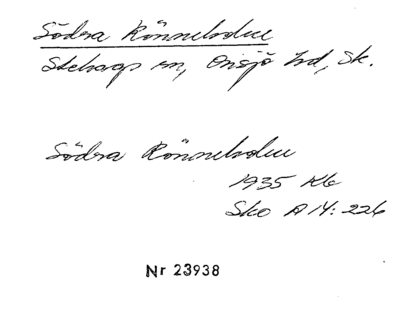 Södra Rönneholm
Stehags sn, Onsjö hd, Sk.
Södra Rönneholm
1935 Kb
Sko A 14: 226
Nr 23938